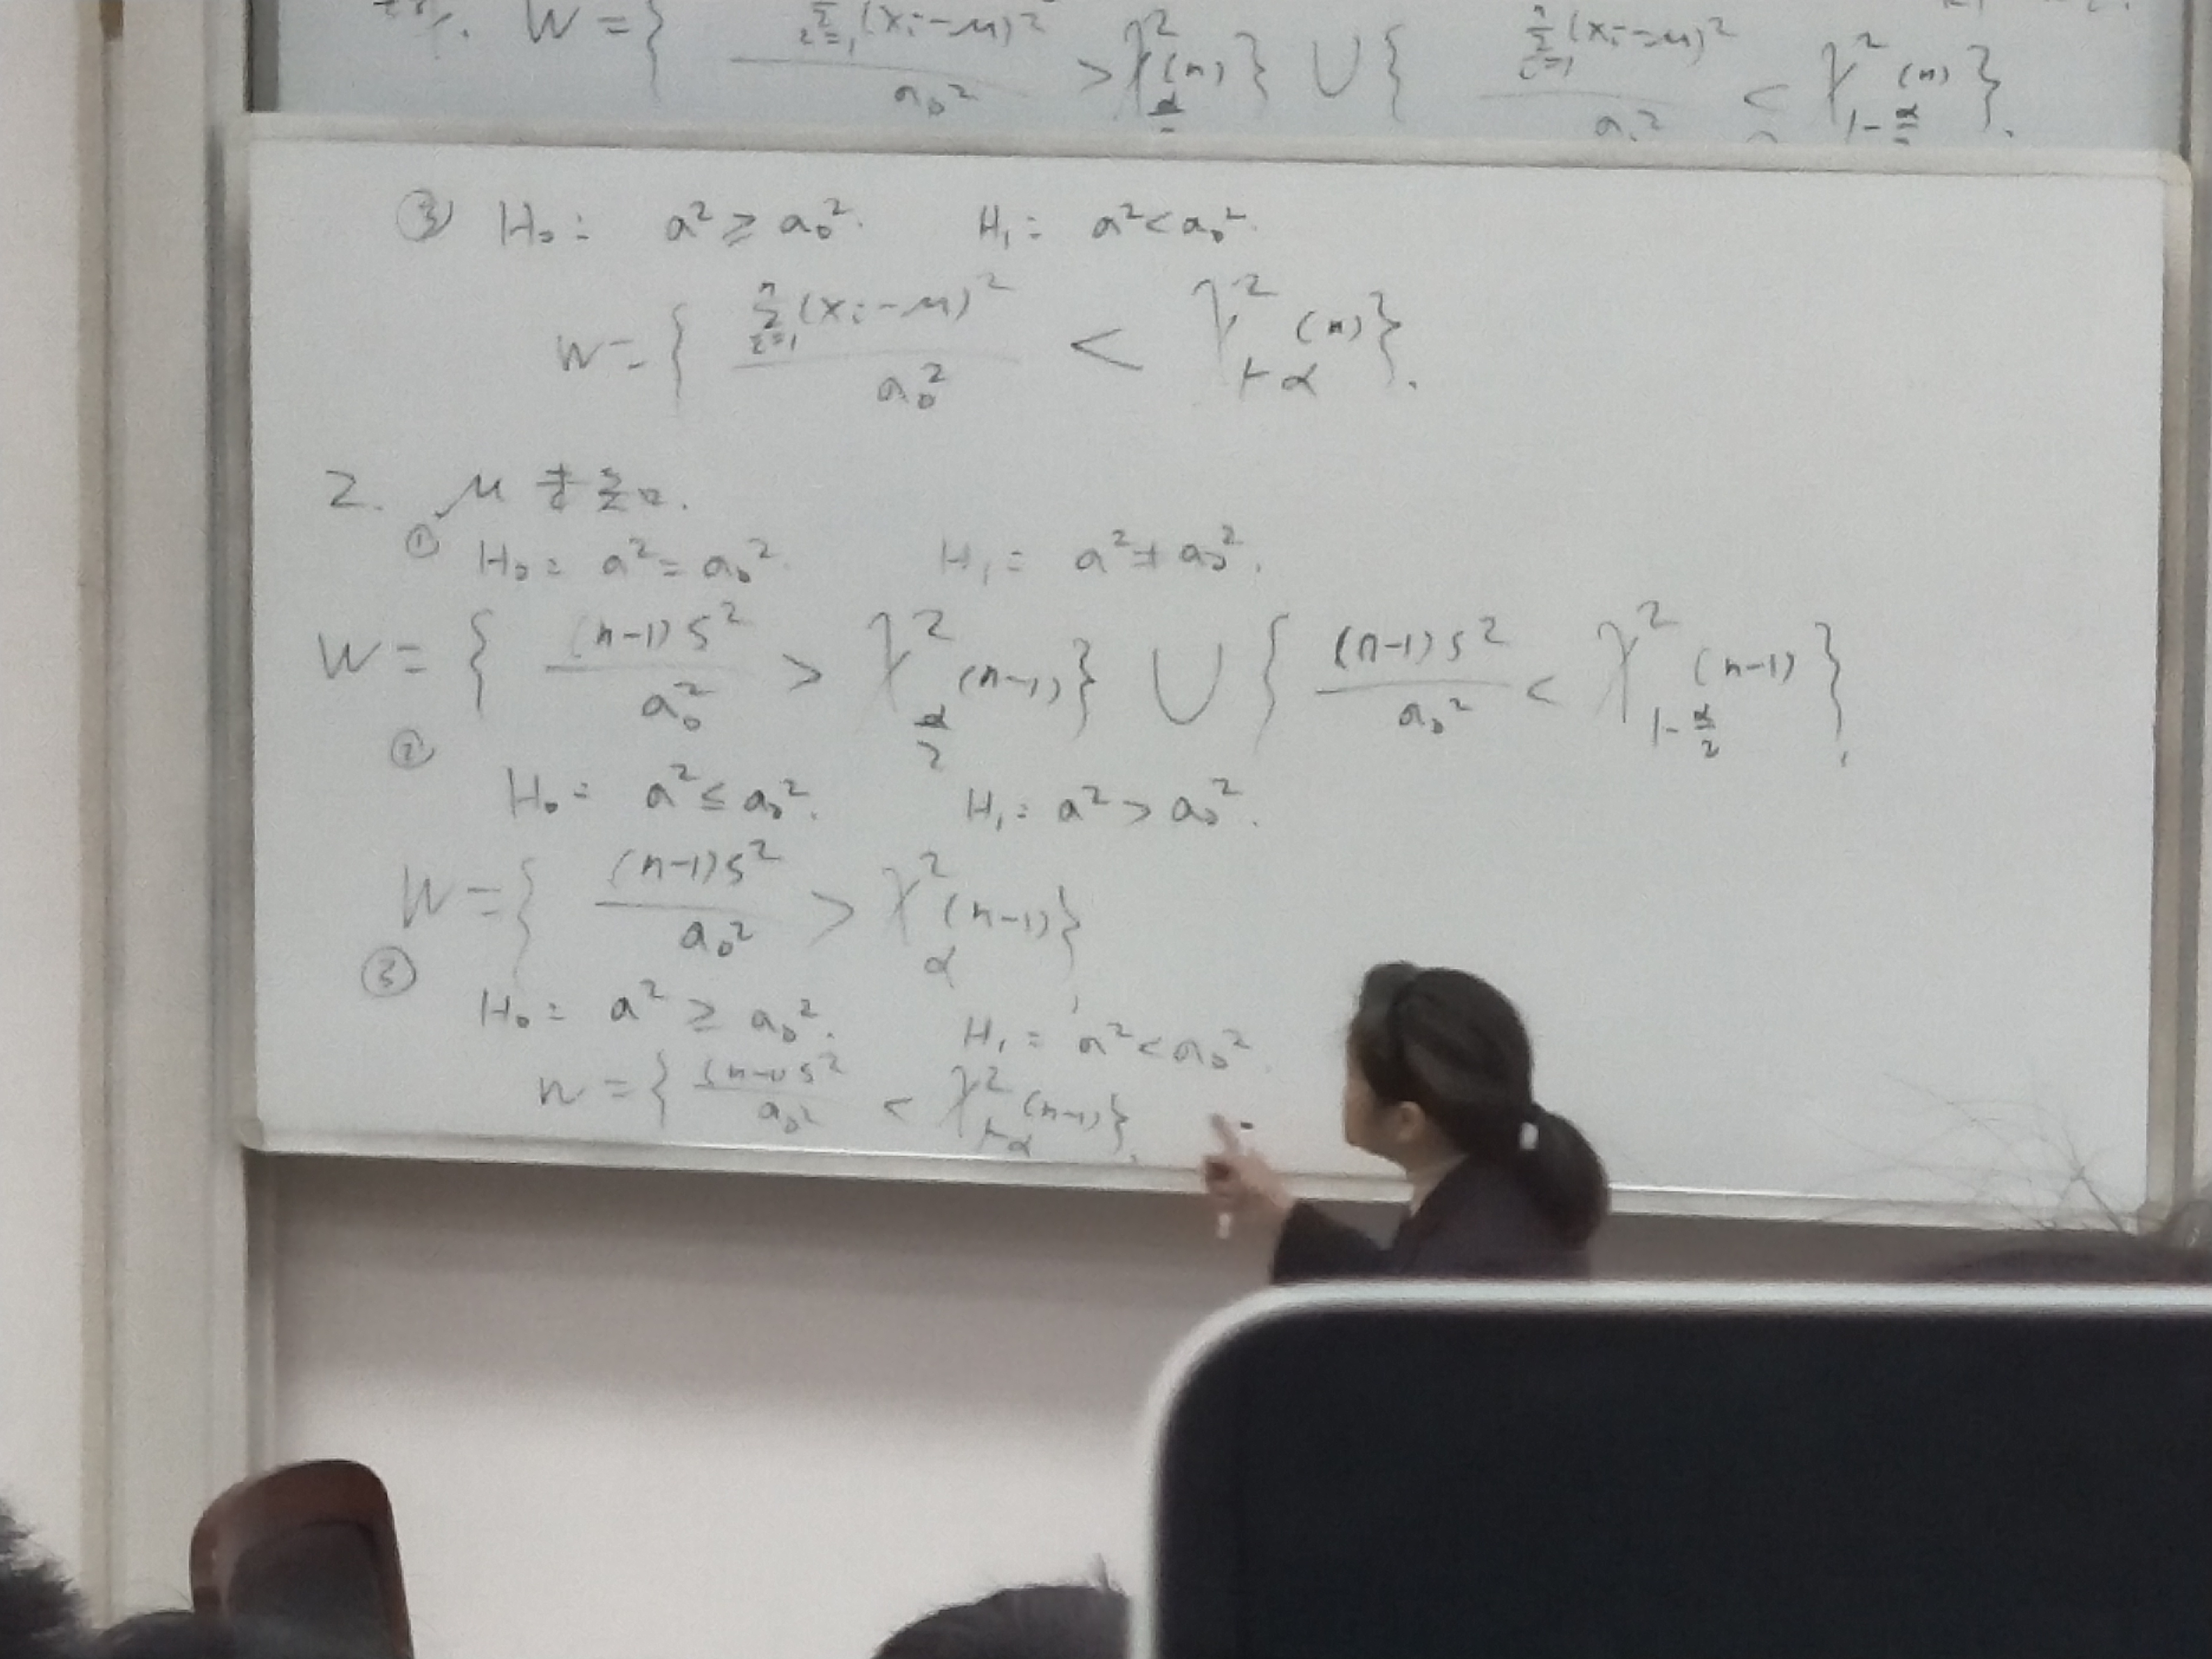 W = { Σ_{i=1}(x_i-μ)² / a_0² > χ²_{α/2}(n) } ∪ { Σ_{i=1}^{n}(x_i-μ)² / a_0² < χ²_{1-α/2}(n) }.
③ H_0: a² ≥ a_0². H_1: a² < a_0².
W = { Σ_{i=1}^{n}(x_i-μ)² / a_0² < χ²_{1-α}(n) }.
2. μ 未知.
① H_0: a² = a_0². H_1: a² ≠ a_0².
W = { (n-1)S² / a_0² > χ²_{α/2}(n-1) } ∪ { (n-1)S² / a_0² < χ²_{1-α/2}(n-1) }.
② H_0: a² ≤ a_0². H_1: a² > a_0².
W = { (n-1)S² / a_0² > χ²_{α}(n-1) },
③ H_0: a² ≥ a_0². H_1: a² < a_0².
W = { (n-1)S² / a_0² < χ²_{1-α}(n-1) }.